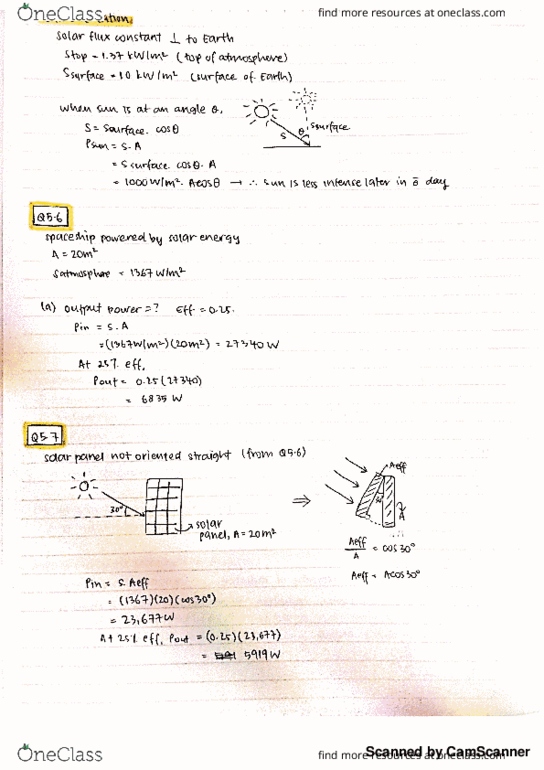 OneClass
find more resources at oneclass.com
solar flux constant ⊥ to Earth
Stop = 1.37 kW/m² (top of atmosphere)
Ssurface = 1.0 kW/m² (surface of Earth)
when sun is at an angle θ,
S = Ssurface · cosθ
Psun = S·A
= Ssurface · cosθ · A
= 1000W/m² · Acosθ → ∴ sun is less intense later in ō day
S
θ
Ssurface
Q5.6
spaceship powered by solar energy
A = 20m²
Satmosphere = 1367 W/m²
(a) output power = ? eff = 0.25.
Pin = S·A
= (1367W/m²)(20m²) = 27340 W
At 25% eff,
Pout = 0.25(27340)
= 6835 W
Q5.7
solar panel not oriented straight (from Q5.6)
30°
solar
panel, A = 20m²
⇒
Aeff
A
Aeff/A = cos30°
Aeff = Acos30°
Pin = S·Aeff
= (1367)(20)(cos30°)
= 23,677W
At 25% eff, Pout = (0.25)(23,677)
= 5919W
OneClass
find more resources at oneclass.com
Scanned by CamScanner